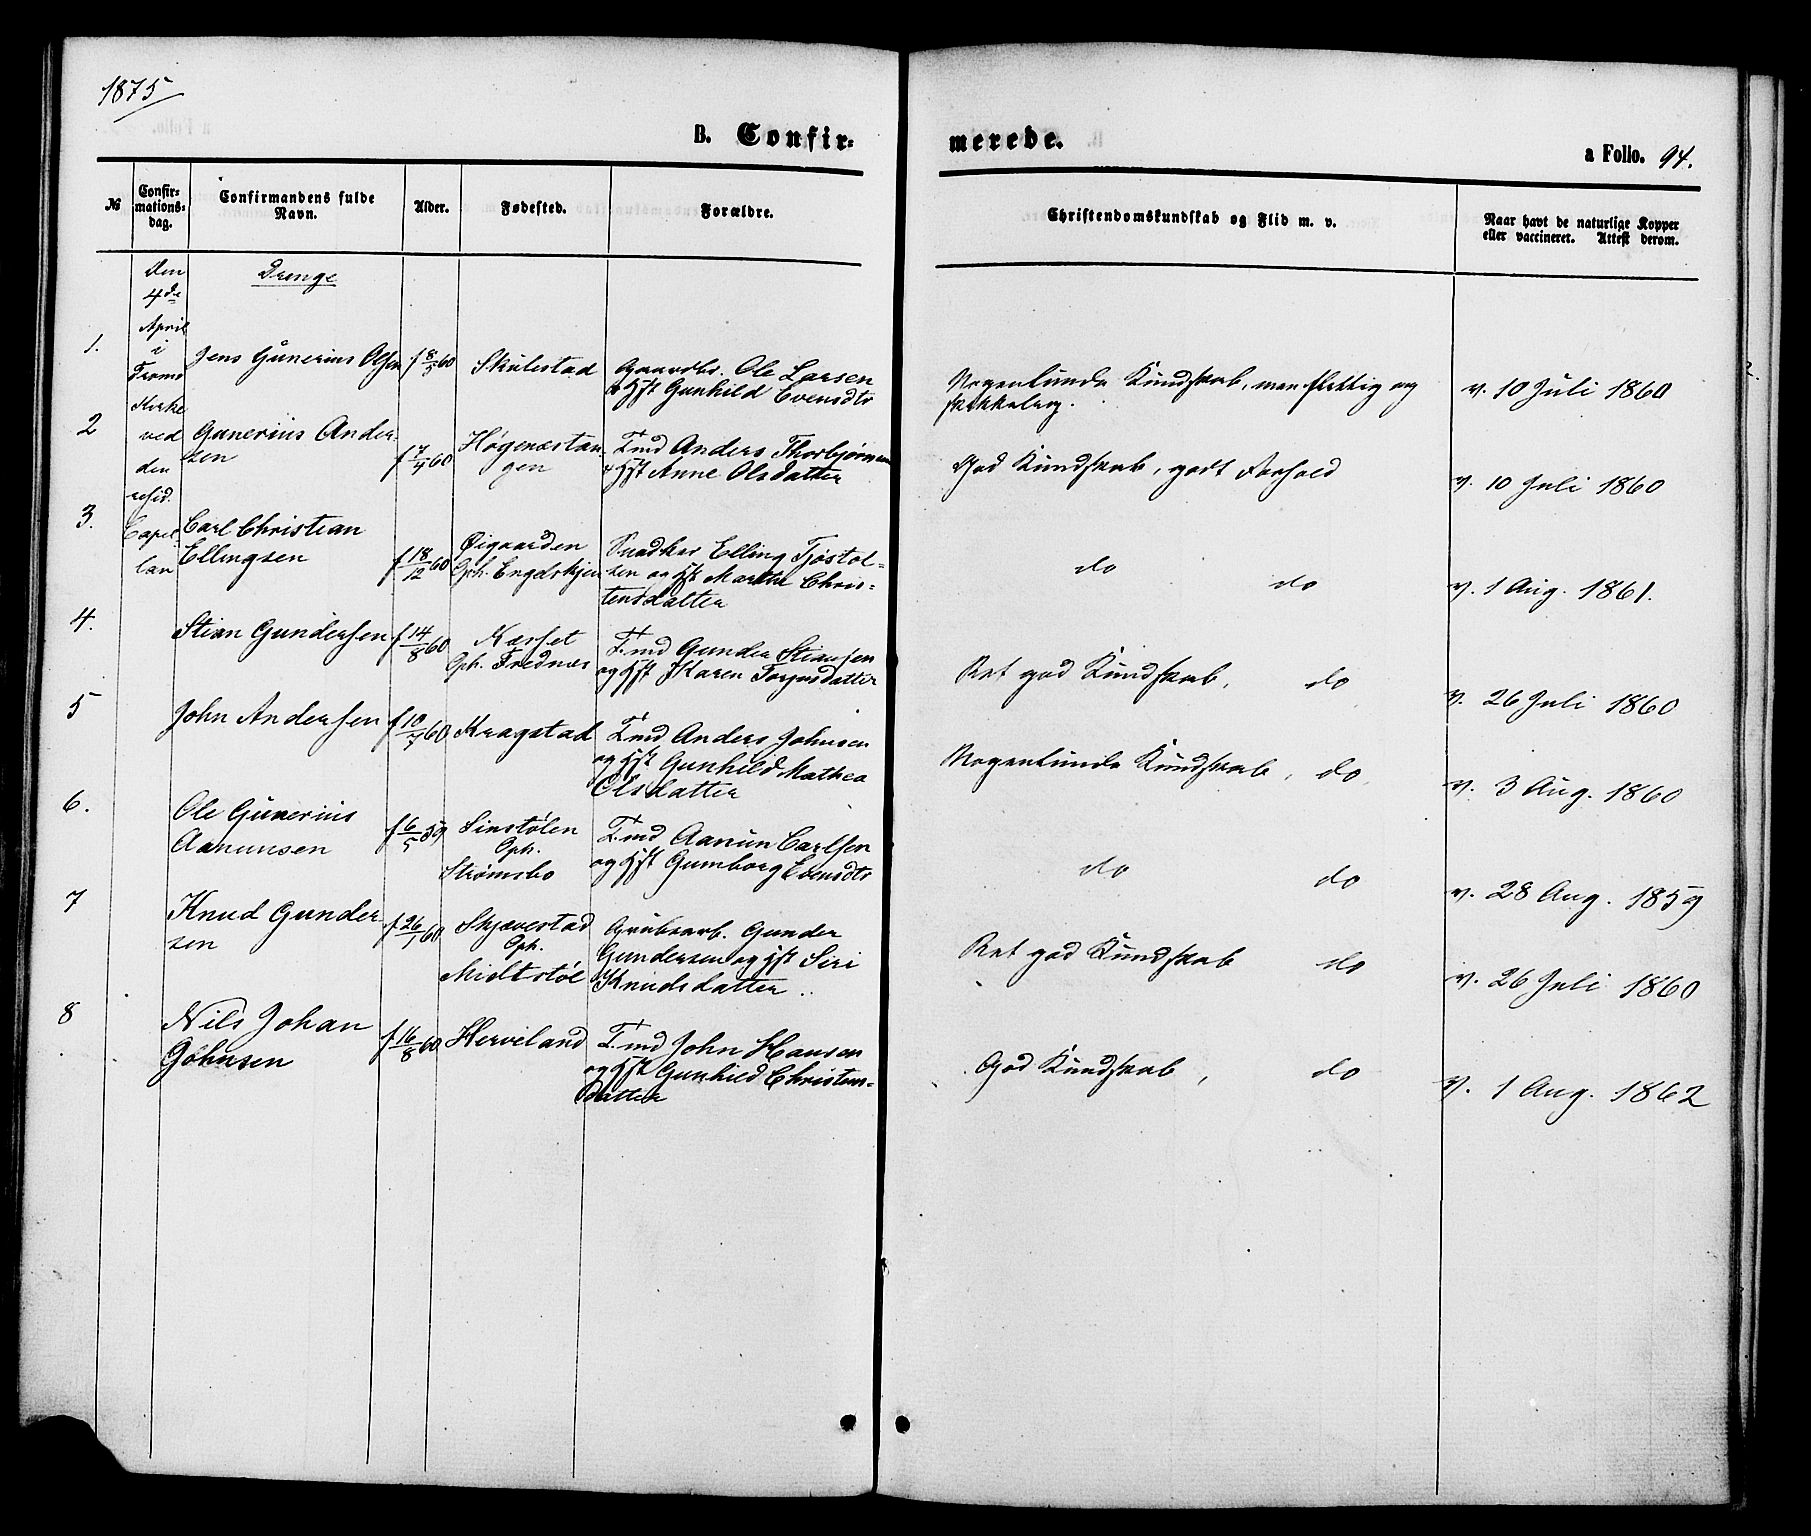 1875
B. Confir-
merede.
a Folio. 94.
№
Confir-
mations-
dag.
Confirmandens fulde
Navn.
Alder.
Fødested.
Forældre.
Christendomskundskab og Flid m. v.
Naar havt de naturlige Kopper
eller vaccineret. Attest derom.
den
4de
April
i
Tromø
Kirke
ved
den
resid.
Capel-
lan
Drenge
1. Jens Gunerius Olsen f 8/5 60 Skulestad
Gaardbr. Ole Larsen
& Hst Gunhild Evensdtr
Nogenlunde Kundskab, men flittig og
skikkelig.
v. 10 Juli 1860
2 Gunerius Ander-
sen
f 7/4 60
Høgenæstan
gen
Tmd Anders Thorbjørnsen
& Hst Anne Olsdatter
God Kundskab, godt Forhold
v. 10 Juli 1860
3. Carl Christian
Ellingsen
f 18/12 60
Øigaarden
Oph. Engelskjen
Elling Tjøstol-
sen og Hst Marthe Chris-
tensdatter
do do
v. 1 Aug. 1861.
4. Stian Gundersen f 14/8 60
Næsset
Oph. Frednæs
Tmd Gunder Stiansen
og Hst Karen Torjusdatter
Ret god Kundskab, do
v. 26 Juli 1860
5 John Andersen f 10/7 60 Kragstad
Tmd Anders Johnsen
og Hst Gunhild Mathea
Olsdatter
Nogenlunde Kundskab, do
v. 3 Aug. 1860
6. Ole Gunerius
Aanunsen
f 6/5 59
Sinstølen
Oph.
Strømsbo
Tmd Aanun Carlsen
og Hst Gumborg Evensdtr
do do
v. 28 Aug. 1859
7 Knud Gunder-
sen
f 26/1 60
Skjævestad
Oph.
Midtstøl
Grubearb. Gunder
Gundersen og Hst Siri
Knudsdatter
Ret god Kundskab do
v. 26 Juli 1860
8 Nils Johan
Johnsen
f 16/8 60
Herveland
Tmd John Hansen
og Hst Gunhild Christens-
datter
God Kundskab, do
v. 1 Aug. 1862